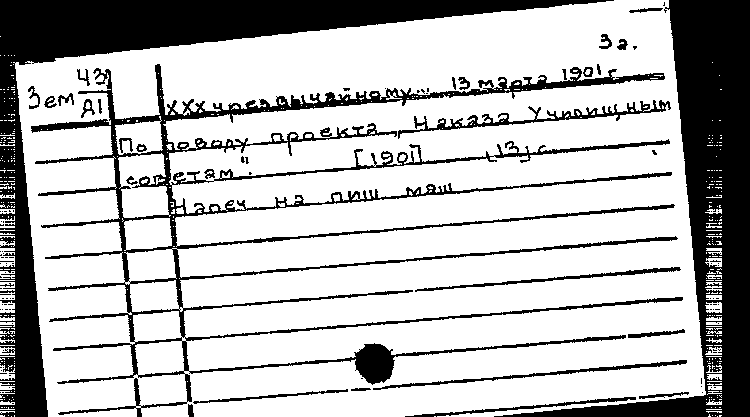 3 г.
Зем 43/Д1
XXX чрезвычайному... 13 марта 1901 г.
По поводу проекта „Наказа Училищным
советам". [1901] 13 с.
Напеч на пиш маш